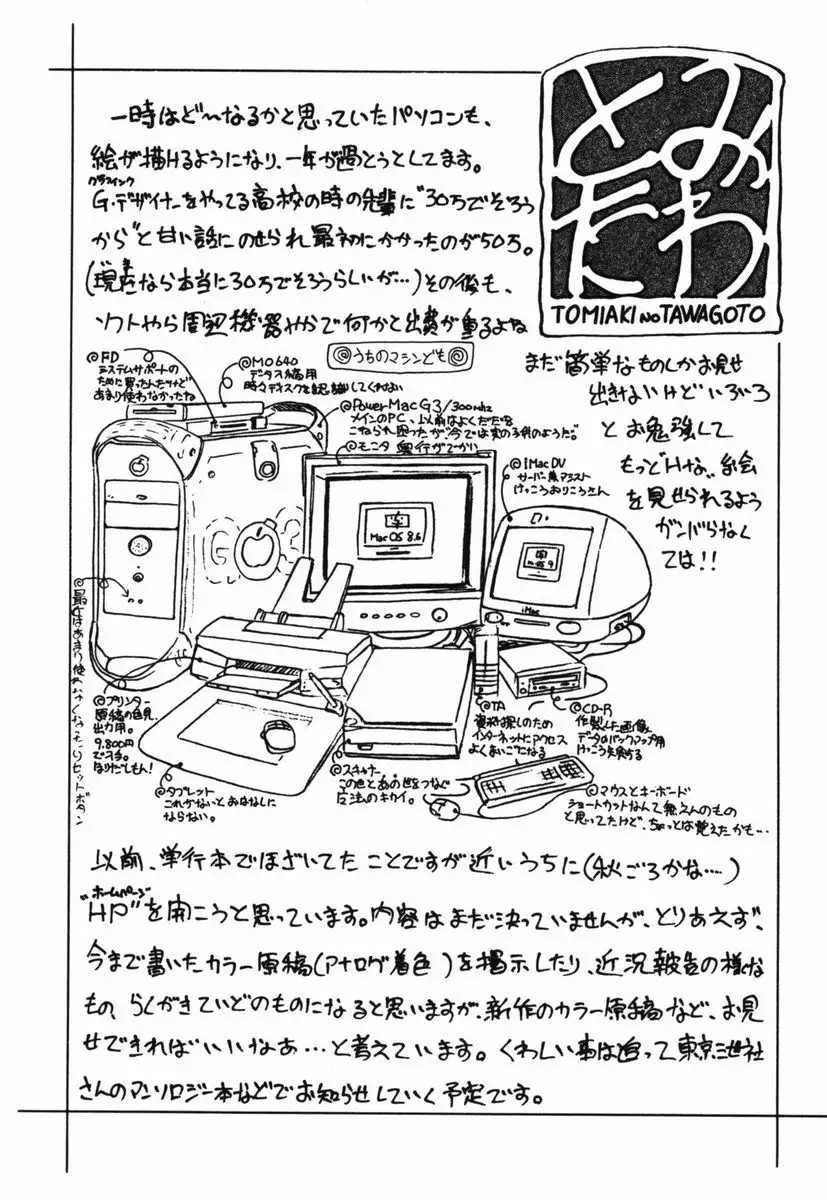 とみ
たわ
TOMIAKI NO TAWAGOTO
一時はど〜なるかと思っていたパソコンも、
絵が描けるようになり、一年が過とうとしてます。
グラフィック
G・デザイナーをやってる高校の時の先輩に"30万でそろう
から"と甘い話にのせられ最初にかかったのが50万。
(現在なら本当に30万でそろうらしいが…)その後も、
ソフトやら周辺機器やかで何かと出費が重るよね
◎うちのマシンども◎
まだ簡単なものしかお見せ
出きないけどいろいろ
とお勉強して
もっどHな〟絵
を見せられるよう
ガンバらなく
ては!!
◎FD
システムサポートの
ために買ったんだけど
あまり使わなかったね
◎MO640
データス稿用
時々ディスクを認識してくれない
◎PowerMacG3/300MHz
メインのPC、以前はよくだだを
こねられ困ったが今では実の子供のようだ。
◎モニタ 奥行がでかい
Mac OS 8.6
◎iMac DV
サーバー兼アシスト
けっこうおりこうさん
OS 9
iMac
G3
◎最近はあまり使わなくなったリセットボタン
◎プリンター
原稿の色見、
出力用。
9,800円
で入手。
ほりだしもん!
◎タブレット
これがないとおはなしに
ならない。
◎スキャナー
この世とあの世をつなぐ
魔法のキカイ。
◎TA
資料探しのため
インターネットにアクセス
よくまいごになる
◎CD-R
作製した画像
データのバックアップ用
けっこう失敗する
◎マウスとキーボード
ショートカットなんて覚えんのもの
と思ってたけど、ちょっとは覚えたかも…
以前、単行本でほざいてたことですが近いうちに(秋ごろかな…)
ホームページ
"HP"を開こうと思っています。内容はまだ決っていませんが、とりあえず、
今まで書いたカラー原稿(アナログ着色)を掲示したり、近況報告の様な
もの、らくがきていどのものになると思いますが、新作のカラー原稿など、お見
せできればいいなあ…と考えています。くわしい事は追って東京三世社
さんのアンソロジー本などでお知らせしていく予定です。